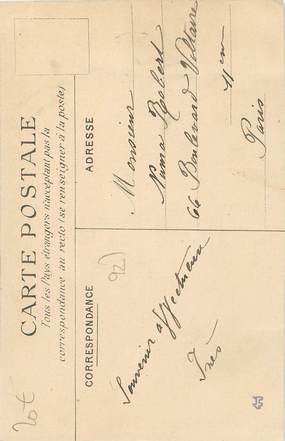 CARTE POSTALE
Tous les Pays étrangers n'acceptant pas la
correspondance au recto (se renseigner à la poste)
CORRESPONDANCE
ADRESSE
92)
Souvenir affectueux
Monsieur
Numa Robert
66 Boulevard Voltaire
11em
Paris
20€